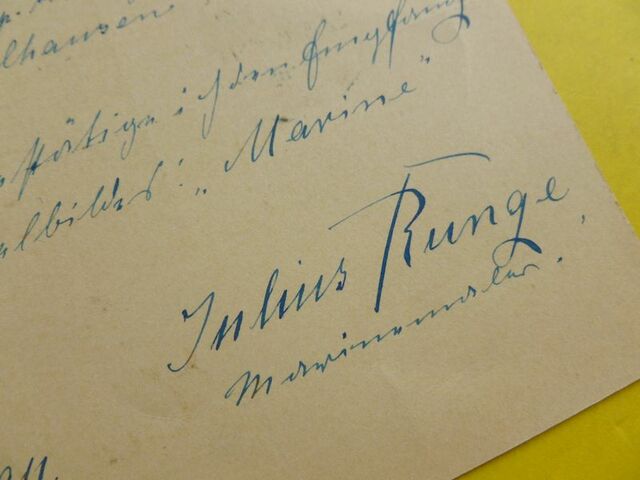 lhausen
stätige ich den Empfang
lbildes: „Marine"
Julius Runge,
Marinemaler.